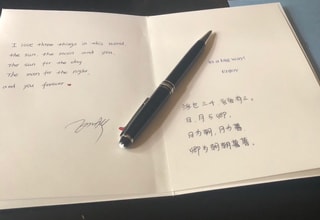 I love three things in this world,
the sun, the moon and you.
The sun for the day,
the moon for the night,
and you forever.
in a big way!
浮世三千 吾爱有三
日、月与卿
日为朝，月为暮
卿为朝朝暮暮。